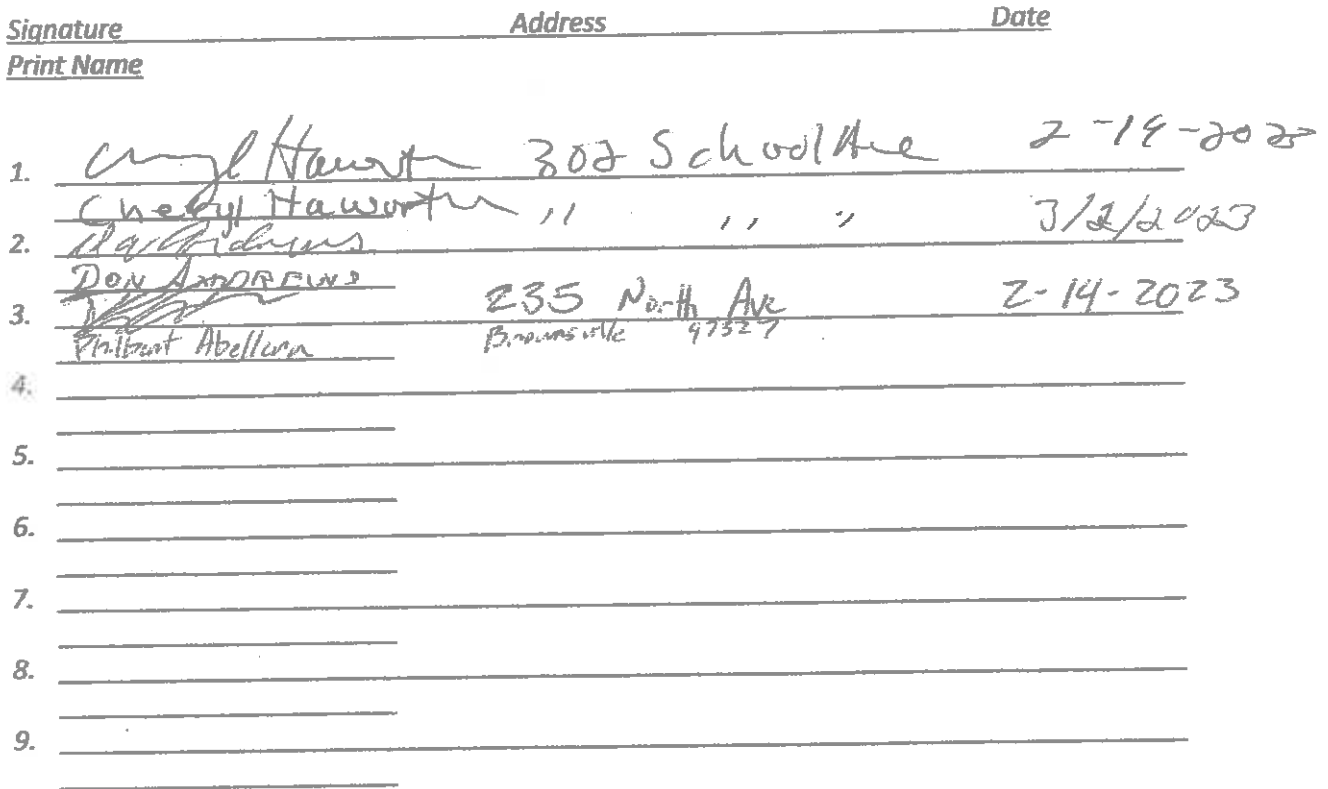 Signature Address Date
Print Name
1. Cheryl Haworth 302 School Ave 2-19-2023
Cheryl Haworth " " "
2. Don Andrews 3/2/2023
DON ANDREWS
3. 235 North Ave 2-14-2023
Philbert Abellana Brownsville 97327
4.
5.
6.
7.
8.
9.